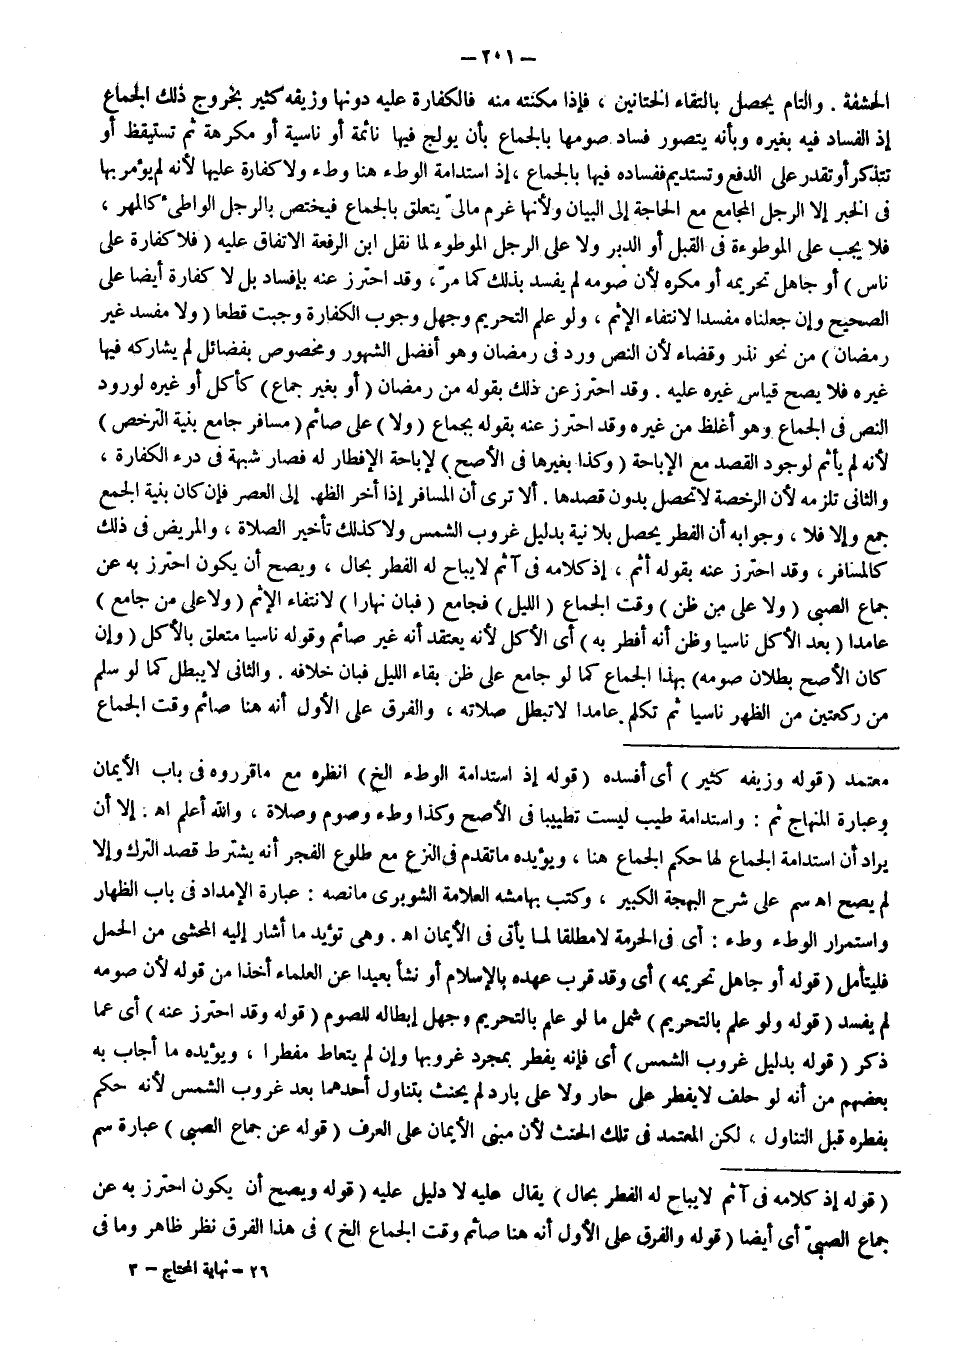 — ٢٠١ —
الحشفة . والتام يحصل بالتقاء الختانين ، فإذا مكنته منه فالكفارة عليه دونها وزيفه كثير بخروج ذلك الجماع
إذ الفساد فيه بغيره وبأنه يتصور فساد صومها بالجماع بأن يولج فيها نائمة أو ناسية أو مكرهة ثم تستيقظ أو
تتذكر أو تقدر على الدفع وتستديم ففساده فيها بالجماع ، إذ استدامة الوطء هنا وطء ولا كفارة عليها لأنه لم يؤمر بها
فى الخبر إلا الرجل المجامع مع الحاجة إلى البيان ولأنها غرم مالىّ يتعلق بالجماع فيختص بالرجل الواطئ كالمهر ،
فلا يجب على الموطوءة فى القبل أو الدبر ولا على الرجل الموطوء لما نقل ابن الرفعة الاتفاق عليه ( فلا كفارة على
ناس ) أو جاهل تحريمه أو مكره لأن صومه لم يفسد بذلك كما مرّ، وقد احترز عنه بإفساد بل لا كفارة أيضا على
الصحيح وإن جعلناه مفسدا لانتفاء الإثم ، ولو علم التحريم وجهل وجوب الكفارة وجبت قطعا ( ولا مفسد غير
رمضان ) من نحو نذر وقضاء لأن النص ورد فى رمضان وهو أفضل الشهور ومخصوص بفضائل لم يشاركه فيها
غيره فلا يصح قياس غيره عليه . وقد احترز عن ذلك بقوله من رمضان ( أو بغير جماع ) كأكل أو غيره لورود
النص فى الجماع وهو أغلظ من غيره وقد احترز عنه بقوله بجماع ( ولا ) على صائم ( مسافر جامع بنية الترخص )
لأنه لم يأثم لوجود القصد مع الإباحة ( وكذا بغيرها فى الأصح ) لإباحة الإفطار له فصار شبهة فى درء الكفارة ،
والثانى تلزمه لأن الرخصة لا تحصل بدون قصدها . ألا ترى أن المسافر إذا أخر الظهر إلى العصر فإن كان بنية الجمع
جمع وإلا فلا ، وجوابه أن الفطر يحصل بلا نية بدليل غروب الشمس ولا كذلك تأخير الصلاة ، والمريض فى ذلك
كالمسافر ، وقد احترز عنه بقوله أثم ، إذ كلامه فى آثم لا يباح له الفطر بحال ، ويصح أن يكون احترز به عن
جماع الصبى ( ولا على من ظن ) وقت الجماع ( الليل ) فجامع ( فبان نهارا ) لانتفاء الإثم ( ولا على من جامع )
عامدا ( بعد الأكل ناسيا وظن أنه أفطر به ) أى الأكل لأنه يعتقد أنه غير صائم وقوله ناسيا متعلق بالأكل ( وإن
كان الأصح بطلان صومه) بهذا الجماع كما لو جامع على ظن بقاء الليل فبان خلافه . والثانى لا يبطل كما لو سلم
من ركعتين من الظهر ناسيا ثم تكلم عامدا لا تبطل صلاته ، والفرق على الأول أنه هنا صائم وقت الجماع
معتمد ( قوله وزيفه كثير ) أى أفسده ( قوله إذ استدامة الوطء الخ ) انظره مع ما قرروه فى باب الأيمان
وعبارة المنهاج ثم : واستدامة طيب ليست تطييبا فى الأصح وكذا وطء وصوم وصلاة ، والله أعلم اهـ . إلا أن
يراد أن استدامة الجماع لها حكم الجماع هنا ، ويؤيده ما تقدم فى النزع مع طلوع الفجر أنه يشترط قصد الترك وإلا
لم يصح اهـ سم على شرح البهجة الكبير ، وكتب بهامشه العلامة الشوبرى ما نصه : عبارة الإمداد فى باب الظهار
واستمرار الوطء وطء : أى فى الحرمة لا مطلقا لما يأتى فى الأيمان اهـ . وهى تؤيد ما أشار إليه المحشى من الحمل
فليتأمل ( قوله أو جاهل تحريمه ) أى وقد قرب عهده بالإسلام أو نشأ بعيدا عن العلماء أخذا من قوله لأن صومه
لم يفسد ( قوله ولو علم بالتحريم ) شمل ما لو علم بالتحريم وجهل إبطاله للصوم ( قوله وقد احترز عنه ) أى عما
ذكر ( قوله بدليل غروب الشمس ) أى فإنه يفطر بمجرد غروبها وإن لم يتعاط مفطرا ، ويؤيده ما أجاب به
بعضهم من أنه لو حلف لا يفطر على حار ولا على بارد لم يحنث بتناول أحدهما بعد غروب الشمس لأنه حكم
بفطره قبل التناول ، لكن المعتمد فى تلك الحنث لأن مبنى الأيمان على العرف ( قوله عن جماع الصبى ) عبارة سم
( قوله إذ كلامه فى آثم لا يباح له الفطر بحال ) يقال عليه لا دليل عليه ( قوله ويصح أن يكون احترز به عن
جماع الصبىّ أى أيضا ( قوله والفرق على الأول أنه هنا صائم وقت الجماع الخ ) فى هذا الفرق نظر ظاهر وما فى
٢٦ – نهاية المحتاج – ٣